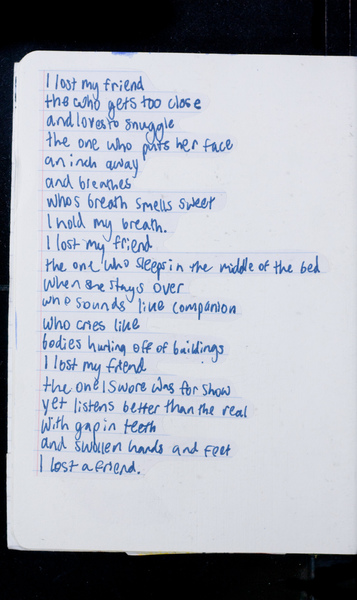 I lost my friend
the who gets too close
and loves to snuggle
the one who puts her face
an inch away
and breathes
whos breath smells sweet
I hold my breath.
I lost my friend
the one who sleeps in the middle of the bed
when she stays over
who sounds like companion
who cries like
bodies hurling off of buildings
I lost my friend
the one I swore was for show
yet listens better than the real
with gap in teeth
and swollen hands and feet
I lost a friend.